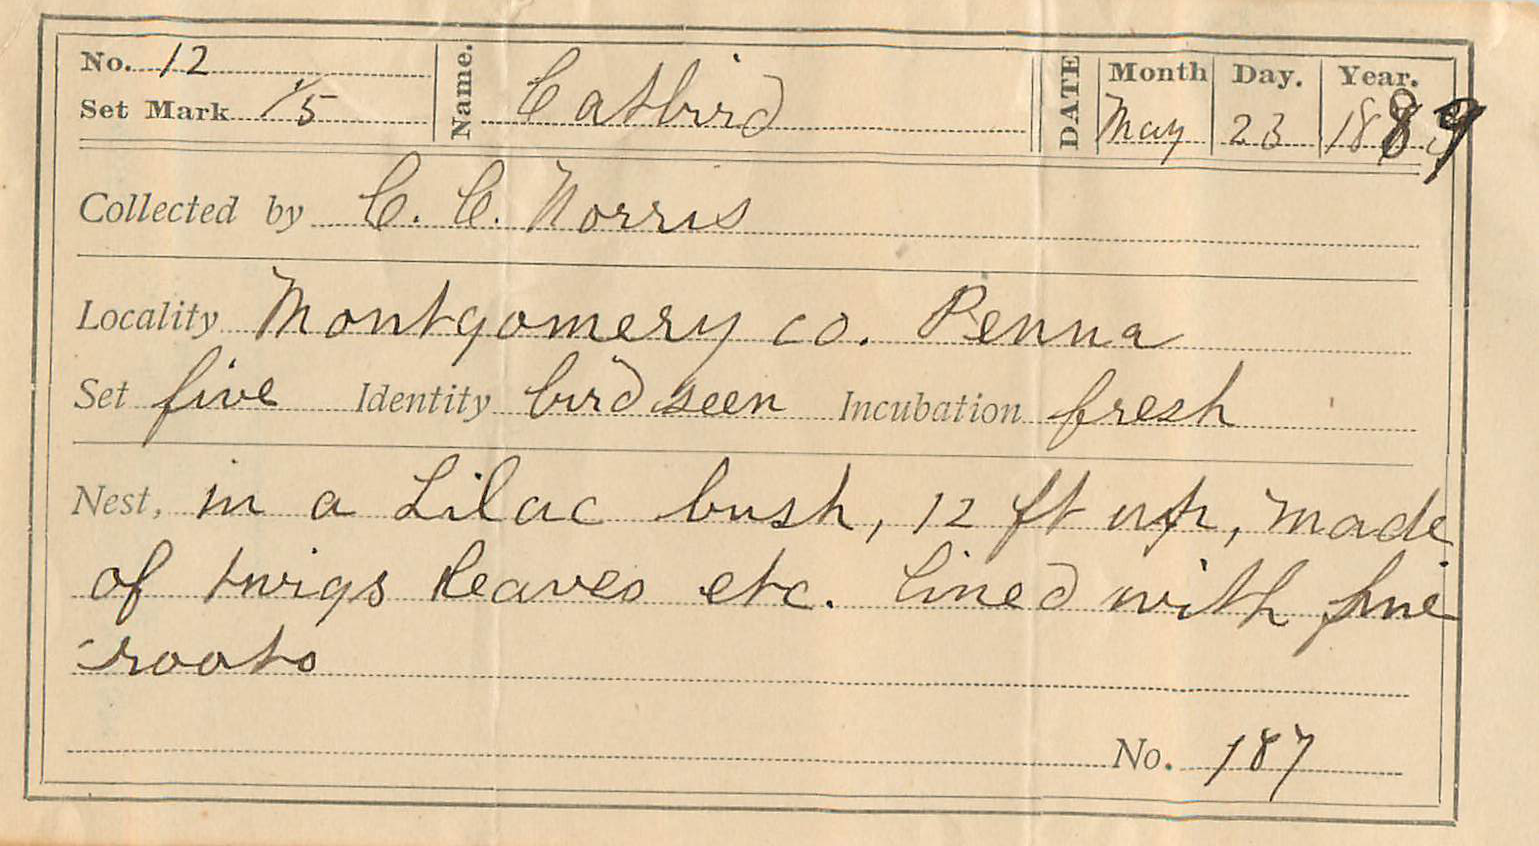 No. 12 Name. Catbird DATE Month Day. Year.
Set Mark 1/5 May 23 1889
Collected by C. C. Norris
Locality Montgomery co. Penna
Set five Identity bird seen Incubation fresh
Nest, in a Lilac bush, 12 ft up, made
of twigs leaves etc. lined with fine
roots
No. 187